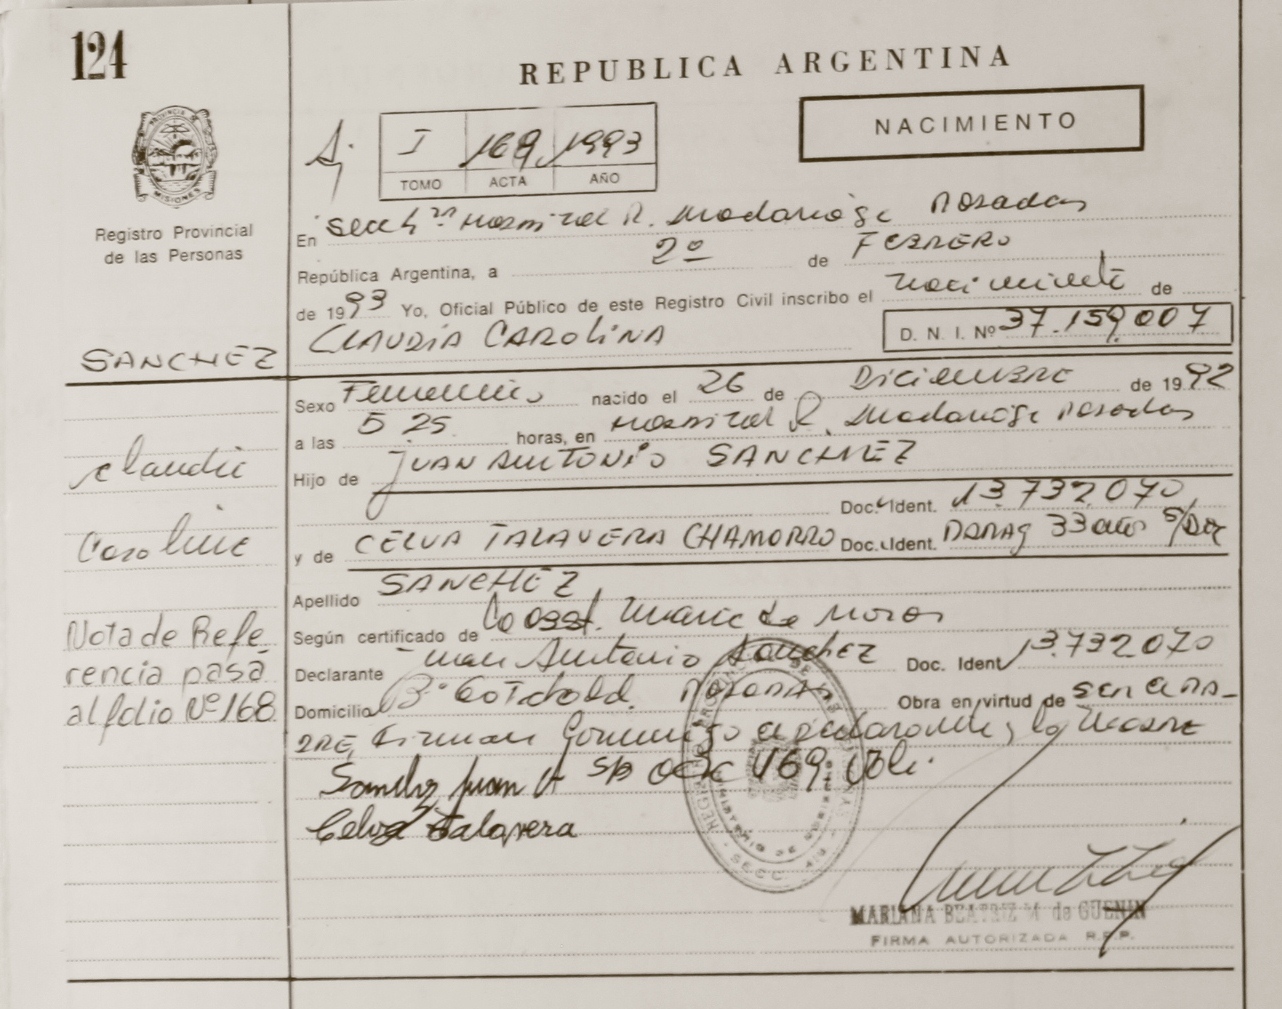 124
REPUBLICA ARGENTINA
NACIMIENTO
I 169 1993
TOMO ACTA AÑO
PROVINCIA DE MISIONES
Registro Provincial
de las Personas
En Secc 4ª Hospital R. Madariaga Posadas
República Argentina, a 2º de FEBRERO
de 1993 Yo, Oficial Público de este Registro Civil inscribo el nacimiento de
CLAUDIA CAROLINA D. N. I. Nº 37.159.007
SANCHEZ
Sexo Femenino nacido el 26 de DICIEMBRE de 1992
a las 5 25 horas, en Hospital R. Madariaga Posadas
Claudia
Hijo de JUAN ANTONIO SANCHEZ
Doc. Ident. 13.732.070
Carolina
y de CELVA TALAVERA CHAMORRO Doc. Ident. PARAG 33 años S/Doc
Apellido SANCHEZ
Nota de Refe-
Según certificado de Obst. Maria de Moras
rencia pasa
Declarante Juan Antonio Sanchez Doc. Ident 13.732070
al folio Nº 168
Domicilio Bº Posadas Obra en virtud de ser el PA-
DRE, Firman Conmigo el declarante y la MADRE
Sanchez Juan A s/p acta 169 Vale.
Celva Talavera
MARIANA BEATRIZ M de GUENIN
FIRMA AUTORIZADA R.P.P.